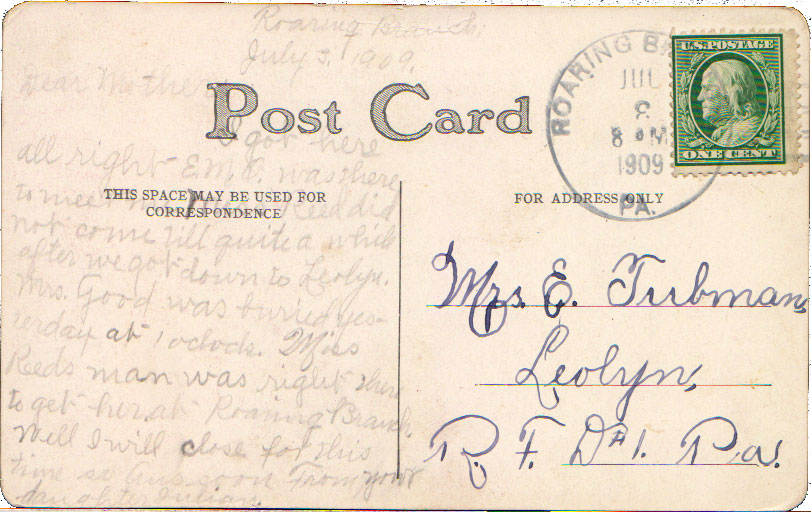 Roaring Branch,
July 3, 1909.
Dear Mother
I got here
all right E.M.C. was there
to meet me Miss Reed did
not come till quite a while
after we got down to Leolyn.
Mrs. Good was buried yes-
terday at 1 oclock. Miss
Reeds man was right there
to get her at Roaring Branch
Well I will close for this
time From your
daughter
Post Card
THIS SPACE MAY BE USED FOR
CORRESPONDENCE
FOR ADDRESS ONLY
ROARING B
JUL
8
8 AM
1909
PA.
U.S. POSTAGE
ONE CENT
Mrs. E. Tubman,
Leolyn,
R. F. D #1. Pa.